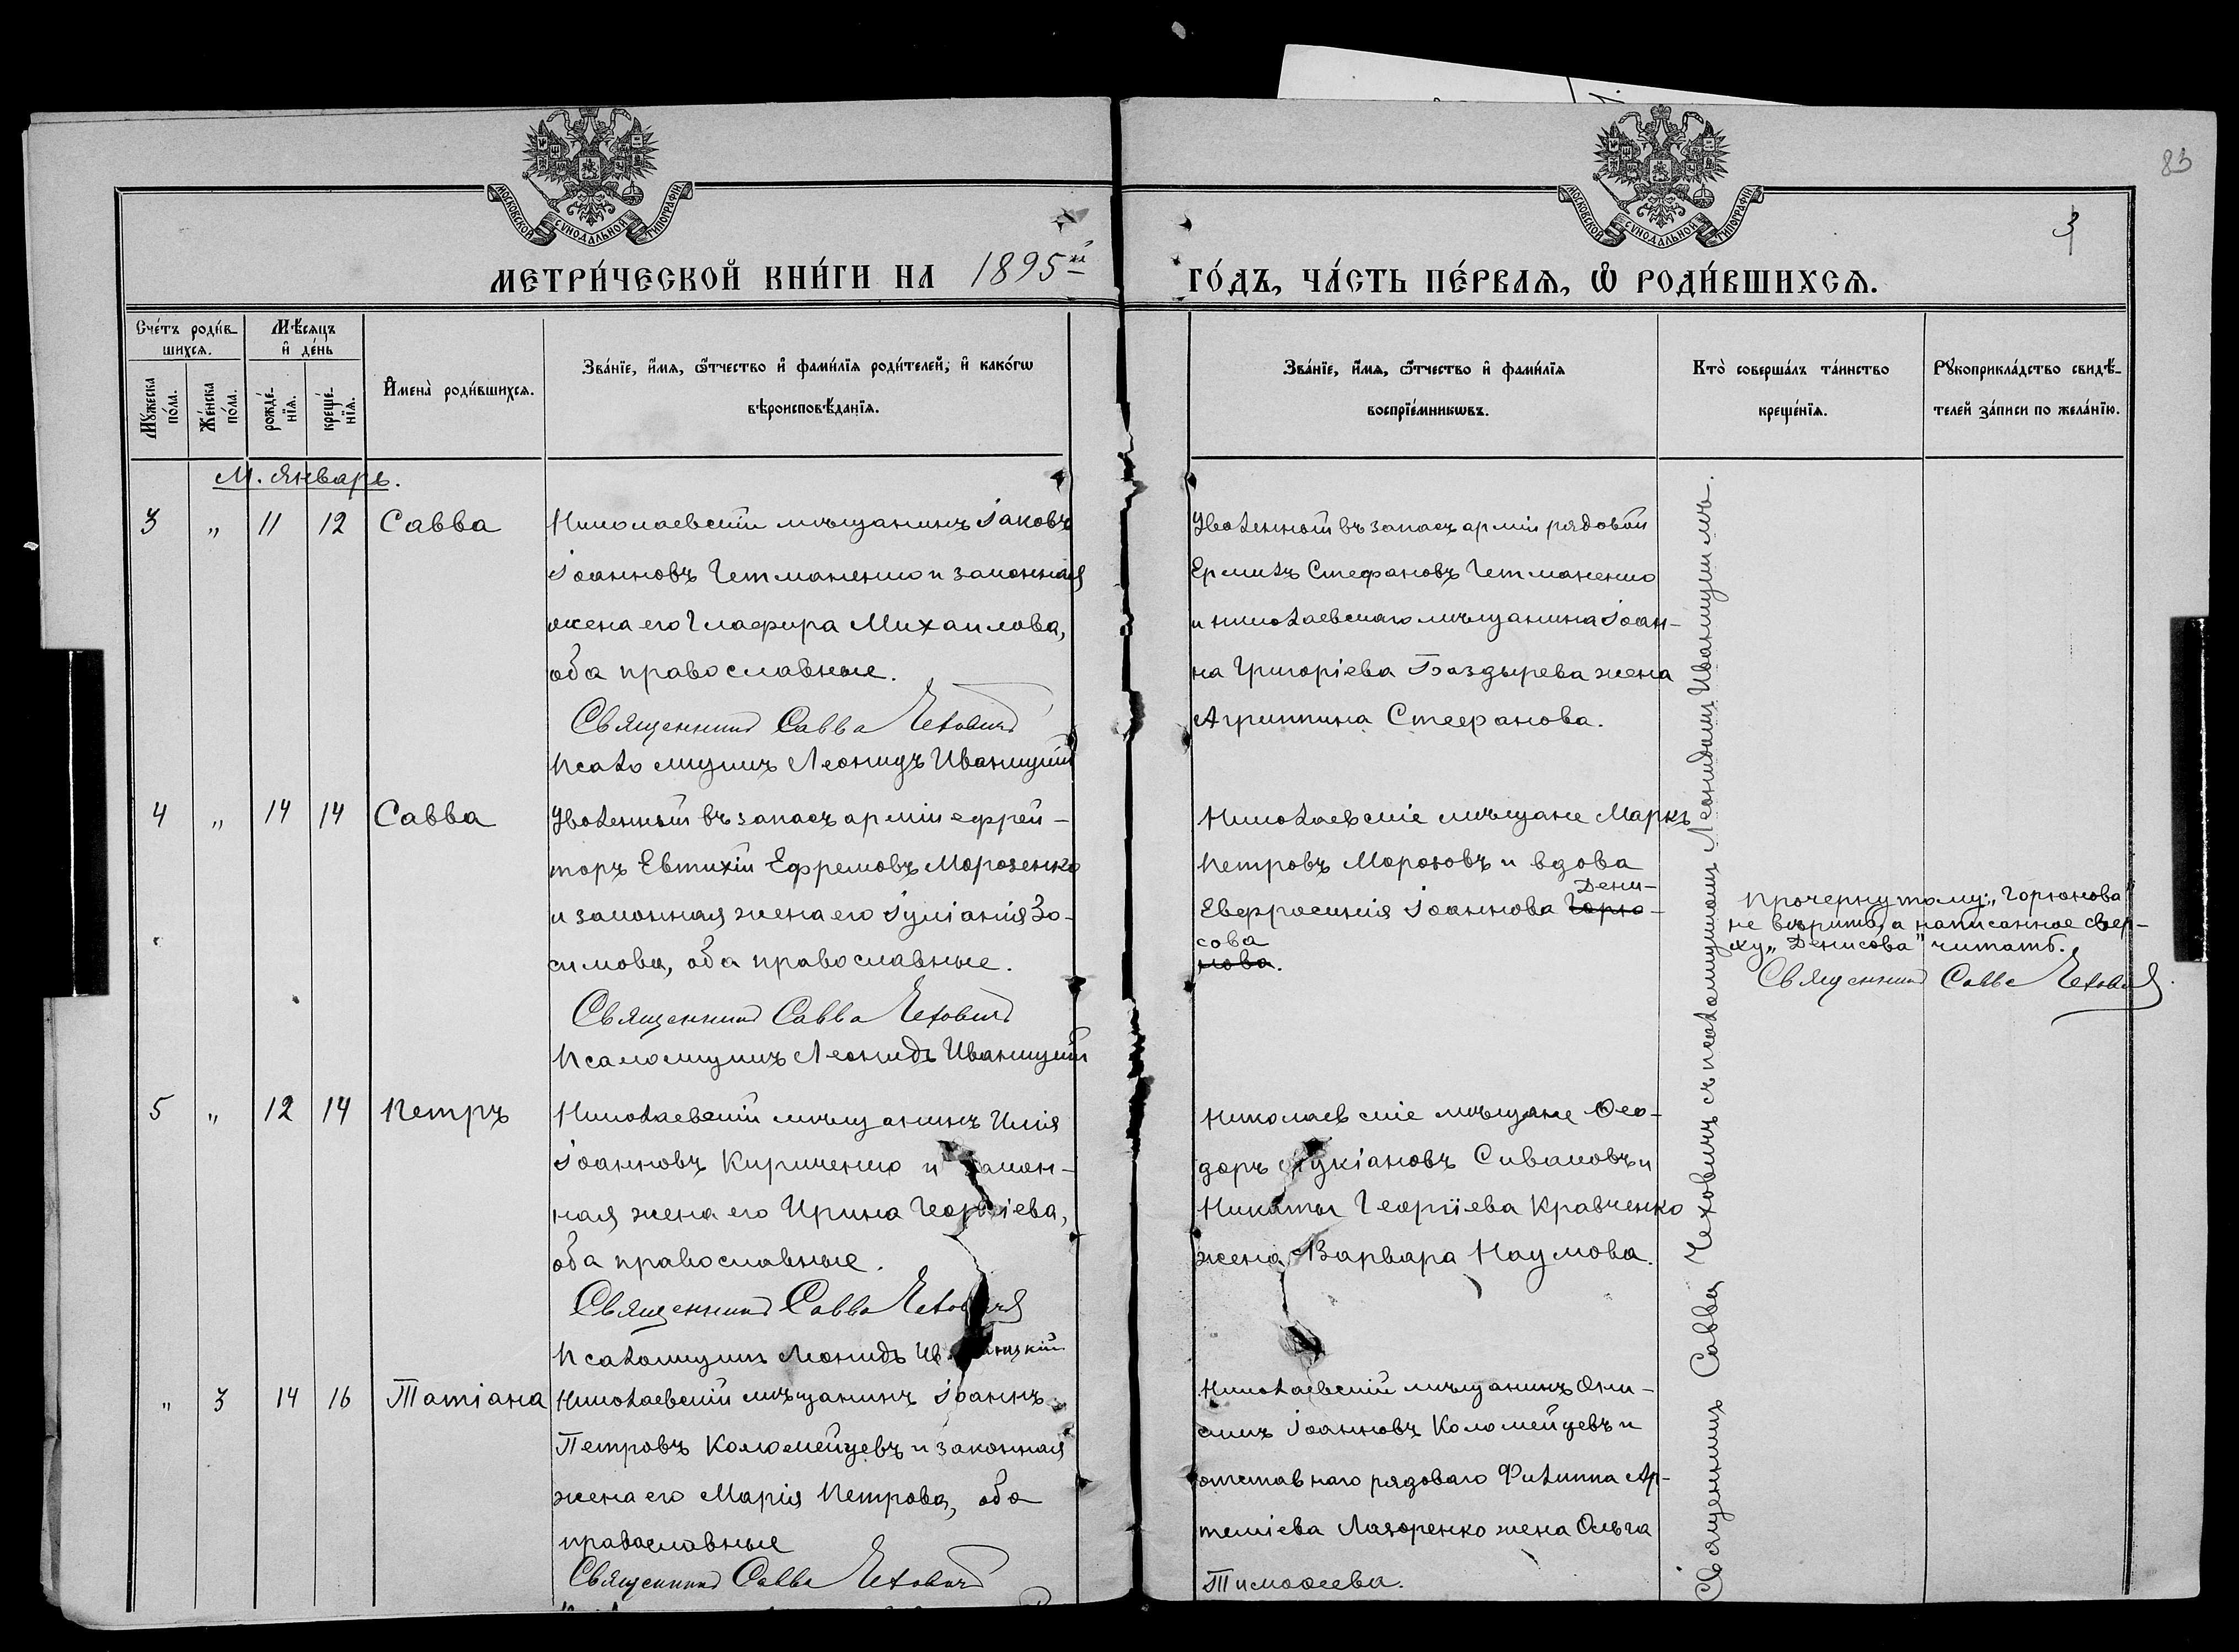 83
3
МОСКОВСКОЙ СѴНОДАЛЬНОЙ ТИПОГРАФІИ
МОСКОВСКОЙ СѴНОДАЛЬНОЙ ТИПОГРАФІИ
МЕТРИ́ЧЕСКОЙ КНИ́ГИ НА 1895й ГО́ДЪ, ЧА́СТЬ ПЕ́РВАѦ, Ѡ РОДИ́ВШИХСѦ.
Сче́тъ роди́в-
шихсѧ.
Мꙋжеска по́ла.
Же́нска по́ла.
Мѣ́сѧцъ
и҆ де́нь
рожде́-
нїѧ.
креще́-
нїѧ.
И҆мена̀ роди́вшихсѧ.
Зва́нїе, и҆́мѧ, ѻ҆́тчество и҆ фами́лїѧ роди́телей, и҆ како́гѡ
вѣроисповѣ́данїѧ.
Зва́нїе, и҆́мѧ, ѻ҆́тчество и҆ фами́лїѧ
воспрїе́мникѡвъ.
Кто̀ соверша́лъ та́инство
креще́нїѧ.
Рꙋкоприкла́дство свидѣ́-
телей за́писи по жела́нїю.
М. Январь.
3 " 11 12 Савва
Николаевскій мѣщанинъ Іаковъ
Іоанновъ Гетманенко и законная
жена его Глафира Михаилова,
оба православные.
Священникъ Савва Чеховичъ
Псаломщикъ Леонидъ Иваницкій
Уволенный въ запасъ арміи рядовой
Ермилъ Стефановъ Гетманенко
и николаевскаго мѣщанина Іоан-
на Григоріева Баздырева жена
Агриппина Стефанова.
4 " 14 14 Савва
Уволенный въ запасъ арміи ефрей-
торъ Евтихій Ефремовъ Морозенко
и законная жена его Іуліанія Зо-
симова, оба православные.
Священникъ Савва Чеховичъ
Псаломщикъ Леонидъ Иваницкій
Николаевскіе мѣщане Маркъ
Петровъ Морозовъ и вдова
Дени-
Евфросинія Іоаннова Горю-
сова
нова.
Прочеркнутому: „Горюнова"
не вѣрить, а написанное свер-
ху „Денисова" читать.
Священникъ Савва Чеховичъ.
5 " 12 14 Петръ
Николаевскій мѣщанинъ Илія
Іоанновъ Кириченко и закон-
ная жена его Ирина Георгіева,
оба православные.
Священникъ Савва Чеховичъ
Псаломщикъ Леонидъ Иваницкій
Николаевскіе мѣщане Ѳео-
доръ Лукіановъ Сиваковъ и
Никиты Георгіева Кравченко
жена Варвара Наумова.
" 3 14 16 Татіана
Николаевскій мѣщанинъ Іоаннъ
Петровъ Коломейцевъ и законная
жена его Марія Петрова, оба
православные
Священникъ Савва Чеховичъ
Николаевскій мѣщанинъ Они-
симъ Іоанновъ Коломейцевъ и
отставнаго рядоваго Филиппа Ар-
теміева Лазоренко жена Ольга
Тимоѳеева.
Священникъ Савва Чеховичъ съ псаломщикомъ Леонидомъ Иваницкимъ.